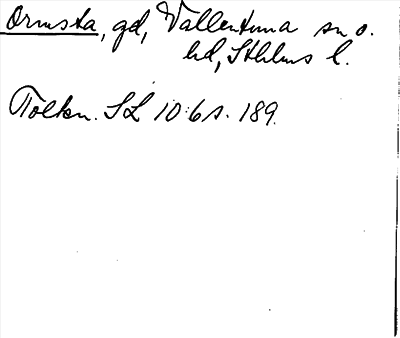 Ormsta, gd, Vallentuna sn o.
hd, Sthlms l.
Tolkn. SL 10:6 s. 189.